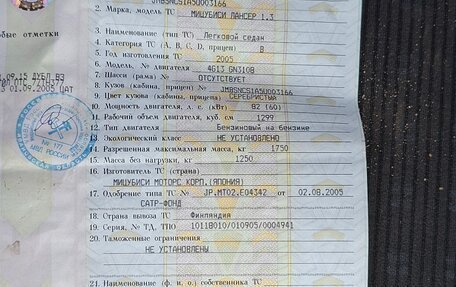 JMBSNCS1A5U003166
2. Марка, модель ТС МИЦУБИСИ ЛАНСЕР 1.3
3. Наименование (тип ТС) Легковой седан
4. Категория ТС (A, B, C, D, прицеп) B
5. Год изготовления ТС 2005
6. Модель, № двигателя 4G13 GN3108
7. Шасси (рама) № ОТСУТСТВУЕТ
8. Кузов (кабина, прицеп) № JMBSNCS1A5U003166
9. Цвет кузова (кабины, прицепа) СЕРЕБРИСТЫЙ
10. Мощность двигателя, л. с. (кВт) 82 (60)
11. Рабочий объем двигателя, куб. см 1299
12. Тип двигателя Бензиновый на бензине
13. Экологический класс НЕ УСТАНОВЛЕНО
14. Разрешенная максимальная масса, кг 1750
15. Масса без нагрузки, кг 1250
16. Изготовитель ТС (страна)
МИЦУБИСИ МОТОРС КОРП.(ЯПОНИЯ)
17. Одобрение типа ТС № JP.MT02.E04342 от 02.08.2005
САТР-ФОНД
18. Страна вывоза ТС Финляндия
19. Серия, № ТД, ТПО 10118010/010905/0004941
20. Таможенные ограничения
НЕ УСТАНОВЛЕНЫ
21. Наименование (ф. и. о.) собственника ТС
обые отметки
.09.15 ДУБЛ ВЗ
01.09.2005 ЦАТ